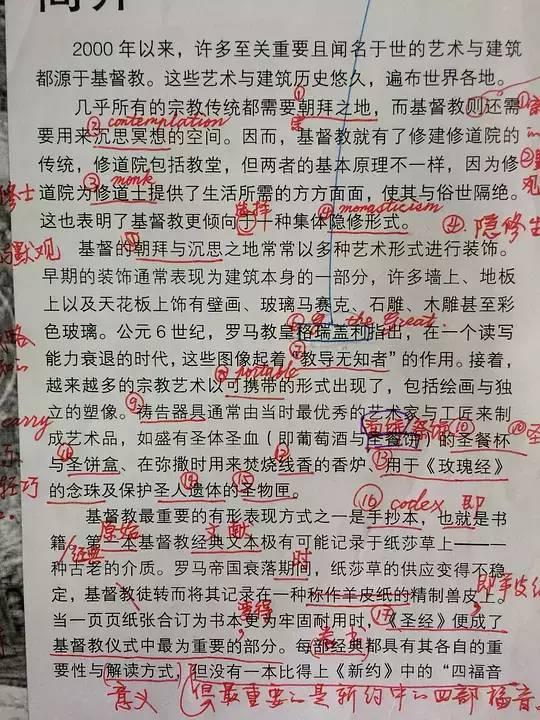 简介
2000年以来，许多至关重要且闻名于世的艺术与建筑
都源于基督教。这些艺术与建筑历史悠久，遍布世界各地。
①
几乎所有的宗教传统都需要朝拜之地，而基督教则还需
② contemplation
要用来沉思冥想的空间。因而，基督教就有了修建修道院的
传统，修道院包括教堂，但两者的基本原理不一样，因为修
③ monk
修士
道院为修道士提供了生活所需的方方面面，使其与俗世隔绝。
④ monasticism
这也表明了基督教更倾向于一种集体隐修形式。
④ 隐修生
默观
基督的朝拜与沉思之地常常以多种艺术形式进行装饰。
早期的装饰通常表现为建筑本身的一部分，许多墙上、地板
上以及天花板上饰有壁画、玻璃马赛克、石雕、木雕甚至彩
the Great
色玻璃。公元6世纪，罗马教皇格瑞盖利指出，在一个读写
⑦
能力衰退的时代，这些图像起着“教导无知者”的作用。接着，
⑧ portable
越来越多的宗教艺术以可携带的形式出现了，包括绘画与独
carry
立的塑像。⑨祷告器具通常由当时最优秀的艺术家与工匠来制
⑩
成艺术品，如盛有圣体圣血（即葡萄酒与圣餐饼）的圣餐杯
⑫ ⑬
与圣饼盒、在弥撒时用来焚烧线香的香炉、用于《玫瑰经》
轻巧
⑭ ⑮
的念珠及保护圣人遗体的圣物匣。
⑯ codex 即
基督教最重要的有形表现方式之一是手抄本，也就是书
原始 文献
籍。第一本基督教经典文本极有可能记录于纸莎草上——一
时
种古老的介质。罗马帝国衰落期间，纸莎草的供应变得不稳
即羊皮纸
定，基督教徒转而将其记录在一种称作羊皮纸的精制兽皮上。
变得 ⑰
当一页页纸张合订为书本更为牢固耐用时，《圣经》便成了
基督教仪式中最为重要的部分。每部经典都具有其各自的重
要性与解读方式，但没有一本比得上《新约》中的“四福音
意义 但最重要的是新约中的四部福音